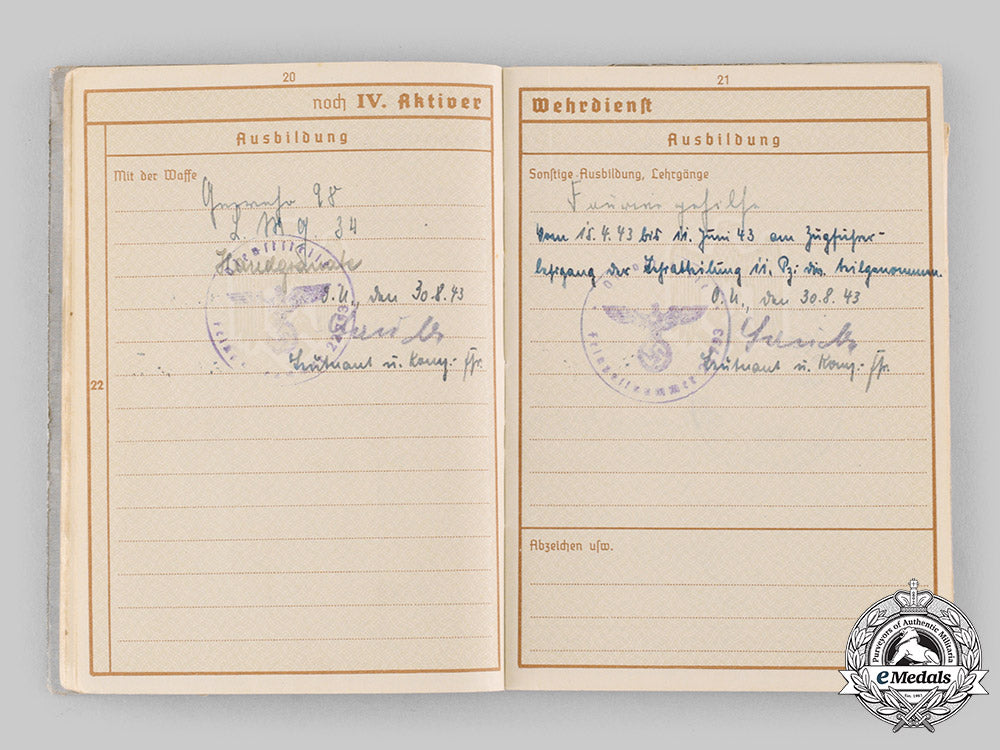 20
noch IV. Aktiver
Ausbildung
Mit der Waffe
Gewehr 98
L. M. G. 34
Handgranate
O.U., den 30.8.43
Leutnant u. Komp.-Fhr.
22
21
Wehrdienst
Ausbildung
Sonstige Ausbildung, Lehrgänge
Fouriergehilfe
Vom 15.4.43 bis 11. Juni 43 am Zugführer-
lehrgang der Lehrabteilung 11. Pz. Div. teilgenommen.
O.U., den 30.8.43
Leutnant u. Komp.-Fhr.
Feldpostnummer
Abzeichen usw.
Purveyors of Authentic Militaria
eMedals